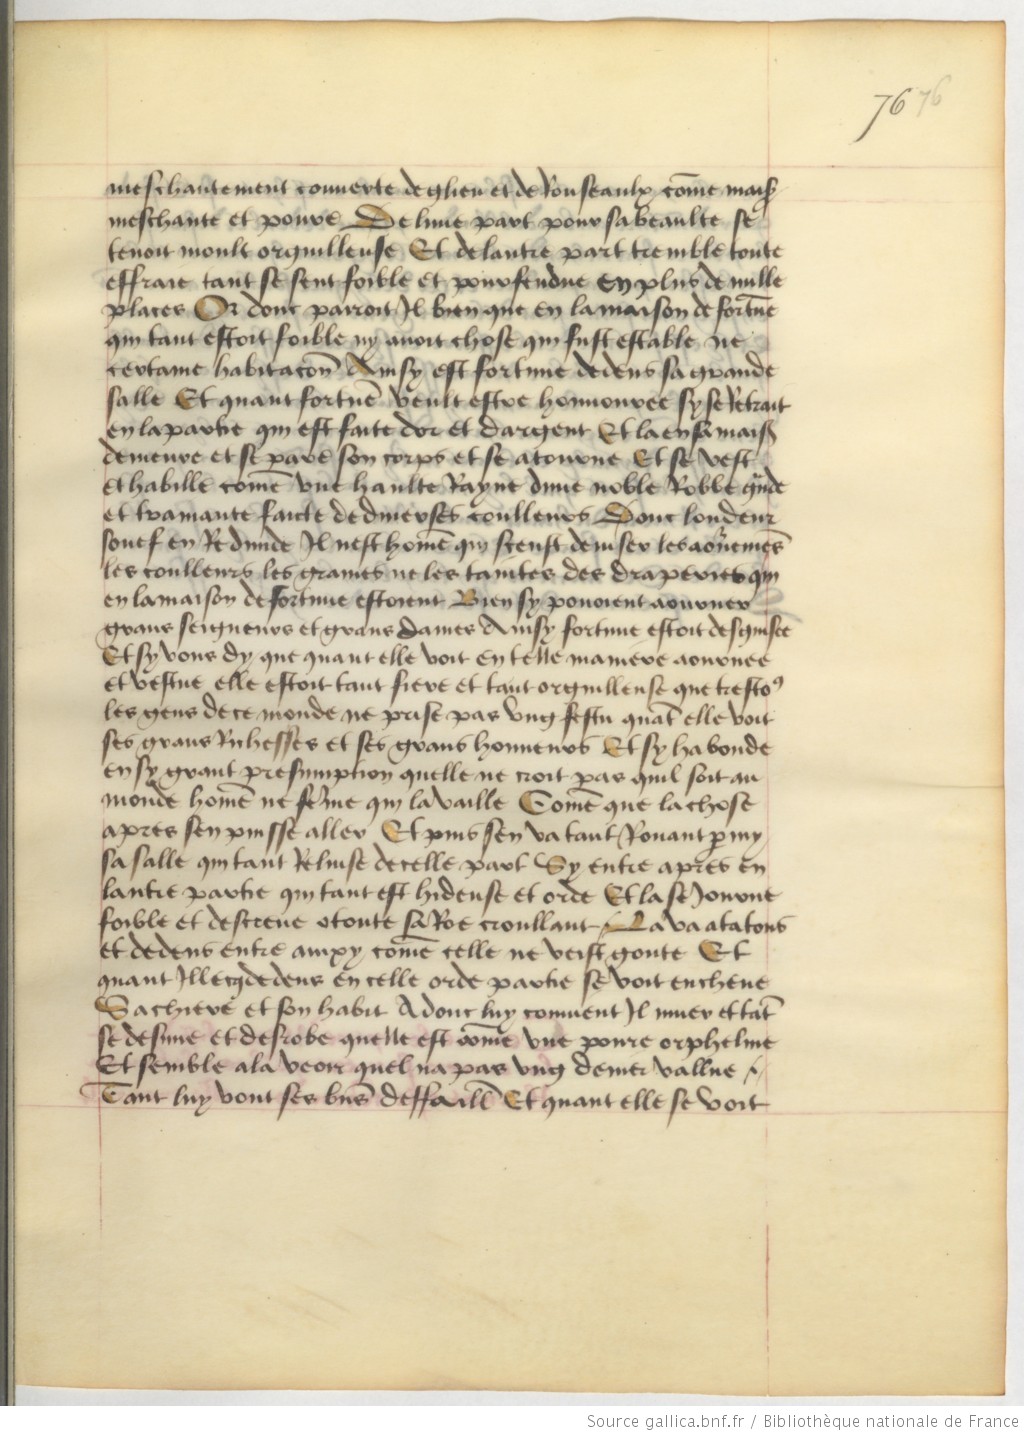 76 76
meschantement couuerte de glieu et de Rouseaulx cōme maisō
meschante et poure De lune part pour sa beaulte se
tenoit moult orguilleuse Et de lautre part tremble toute
effraie tant se sent foible et pourfendue en plus de mille
places Or donc parroit Il bien que en la maison de fortūe
qui tant estoit foible ny auoit chose qui fust estable ne
certaine habitacoñ Ainsy est fortune dedens sa grande
salle Et quant fortuē veult estre honnouree sy se Retrait
en la partie qui est faite dor et dargent Et la en sa maisō
demeure et se pare son corps et se atourne Et se vest
et habille comē vne haulte Rayne dune noble Robbe grāde
et trainante faicte de diuerses coulleurs Dont londeur
souef en Redunde Il nest homē qui sceust deuiser les aournemēs
les coulleurs les graines ne les taintes des draperies qui
en la maison de fortune estoient Bien sy pouoient aourner
grans seigneurs et grans dames Ainsy fortune estoit desguisee
Et sy vous dy que quant elle voit en telle maniere aournee
et vestue elle estoit tant fiere et tant orguilleuse que trestoꝰ
les gens de ce monde ne prise pas vng festu quāt elle voit
ses grans Richesses et ses grans honneurs Et sy habonde
en sy grant presumption quelle ne croit pas quil soit au
monde homē ne feme qui la vaille Comē que la chose
apres sen puisse aller Et puis sen va tant Rouant ꝑmy
sa salle qui tant Reluise de celle part Sy entre apres en
lautre partie qui tant est hideuse et orde Et la se Journe
foible et descreue o toute sa Roe croullant La va a tatons
et dedens entre ainxy comē celle ne veist goute Et
quant Illecq dedens en celle orde partie se voit encheue
Sa chiere et son habit Adonc luy conuient Il muer et tāt
se desnue et desrobe quelle est comē vne poure orpheline
Et semble a la veoir quel na pas vng denier vallue
Tant luy vont ses bñs deffaill Et quant elle se voit
Source gallica.bnf.fr / Bibliothèque nationale de France